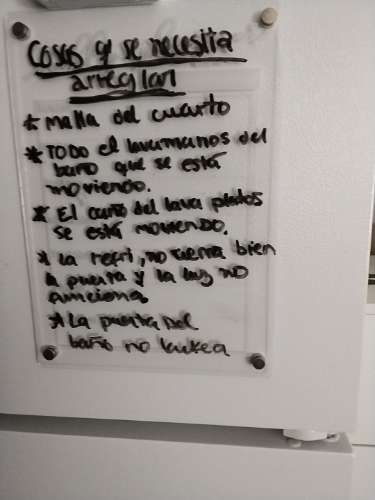 Cosas q se necesita
arreglar
* Malla del cuarto
* TODO el lavamanos del
baño que se está
moviendo.
* El caño del lava platos
se está moviendo.
* La refri, no cierra bien
la puerta y la luz no
funciona
* La puerta del
baño no